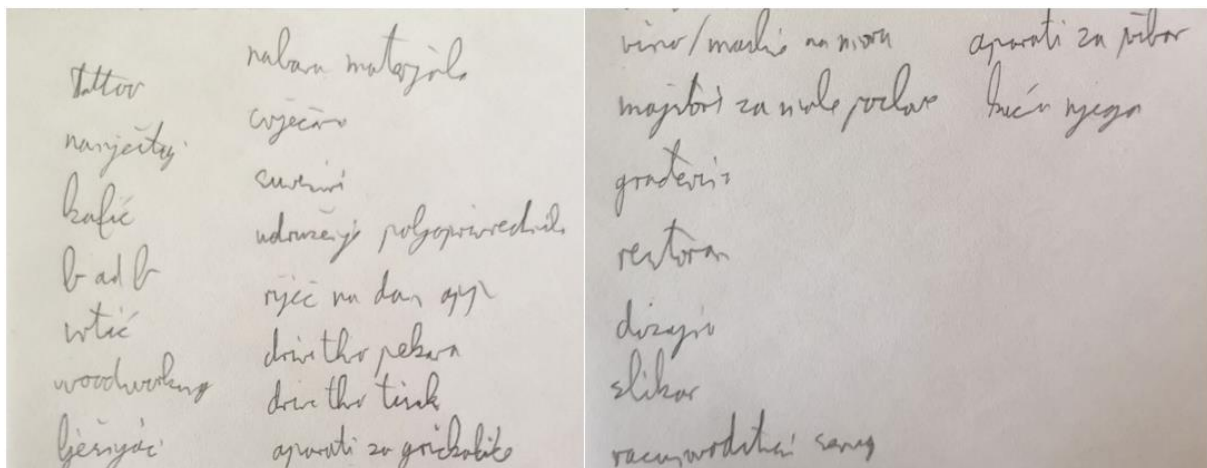 tattoo
namještaj
kafić
b and b
vrtić
woodworking
lješnjaci
nabava materijala
cvjećara
suveniri
udruženje poljoprivrednika
riječ na dan app
drive thru pekara
drive thru tisak
aparati za grickalice
vino/maslina na moru
majstori za male poslove
građevina
restoran
dizajn
slikar
računovodstveni servis
aparati za pribor
kućna njega